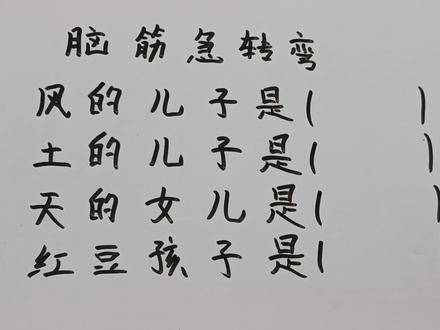 脑筋急转弯
风的儿子是(        )
土的儿子是(        )
天的女儿是(        )
红豆孩子是(